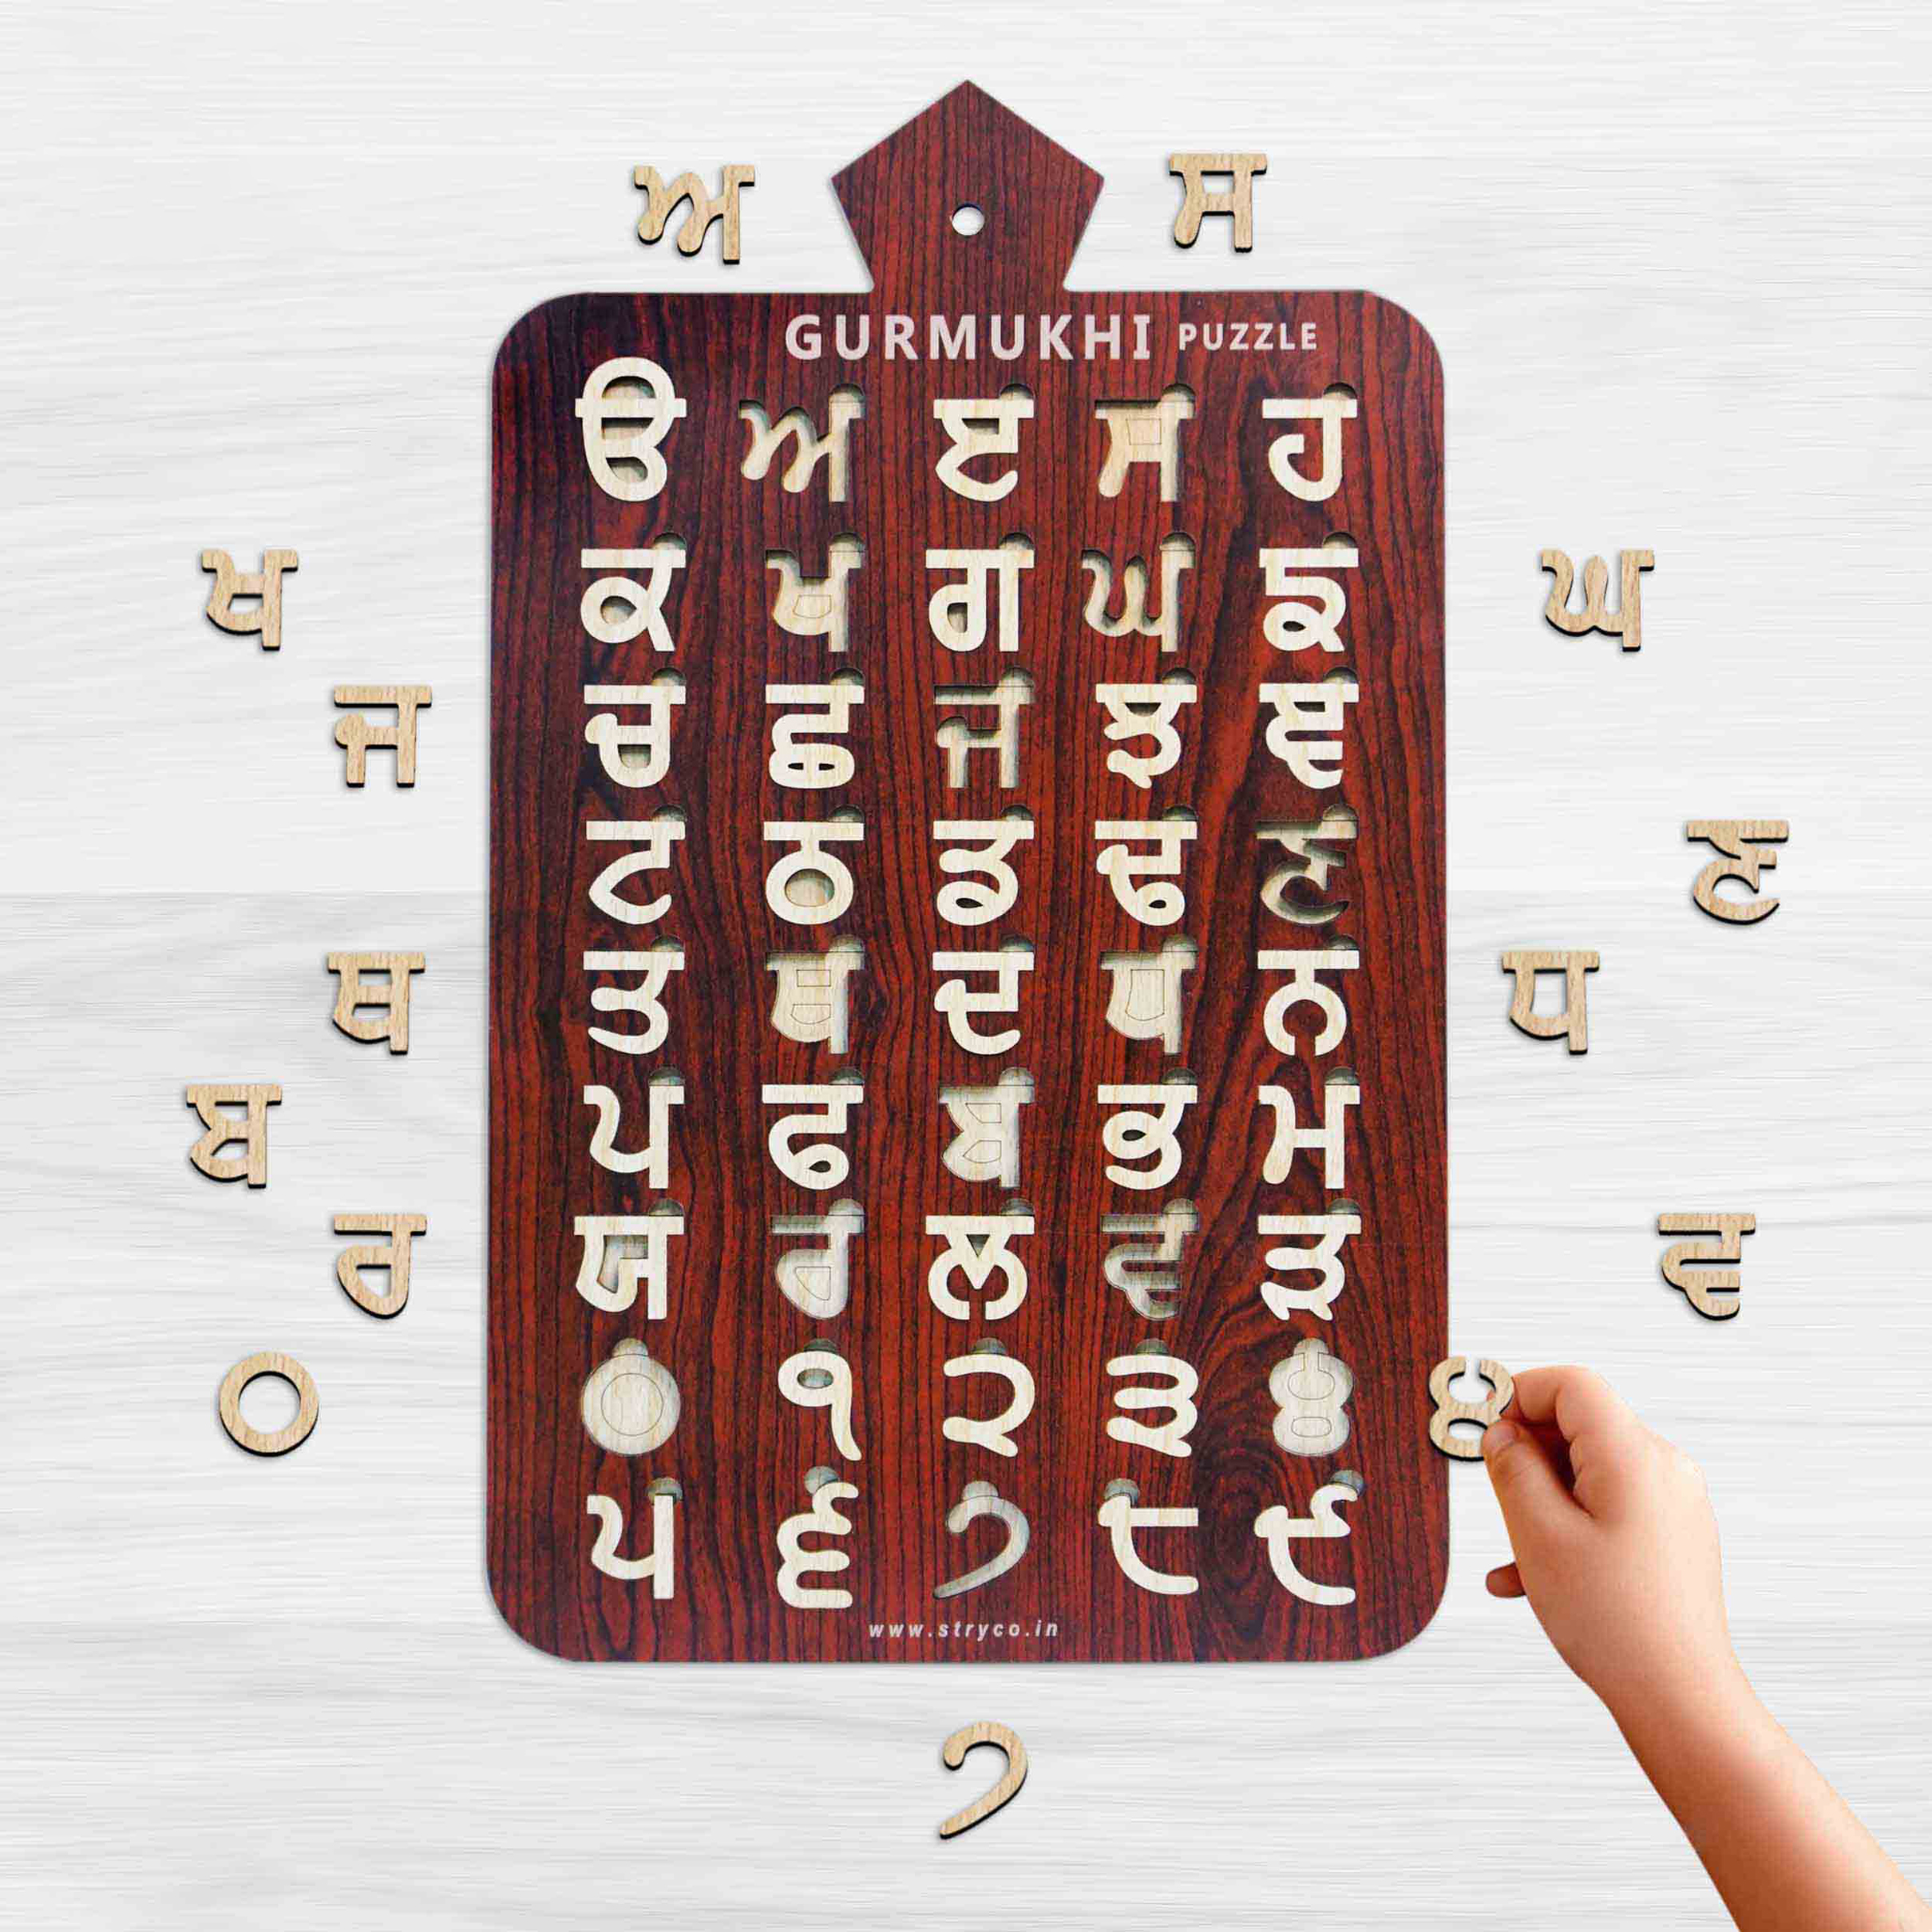 GURMUKHI PUZZLE
ੳ ਅ ੲ ਸ ਹ
ਕ ਖ ਗ ਘ ਙ
ਚ ਛ ਜ ਝ ਞ
ਟ ਠ ਡ ਢ ਣ
ਤ ਥ ਦ ਧ ਨ
ਪ ਫ ਬ ਭ ਮ
ਯ ਰ ਲ ਵ ੜ
੦ ੧ ੨ ੩ ੪
੫ ੬ ੭ ੮ ੯
www.stryco.in
ਅ ਸ
ਖ ਘ
ਜ
ਣ
ਥ ਧ
ਬ
ਰ ਵ
੦ ੪
੭